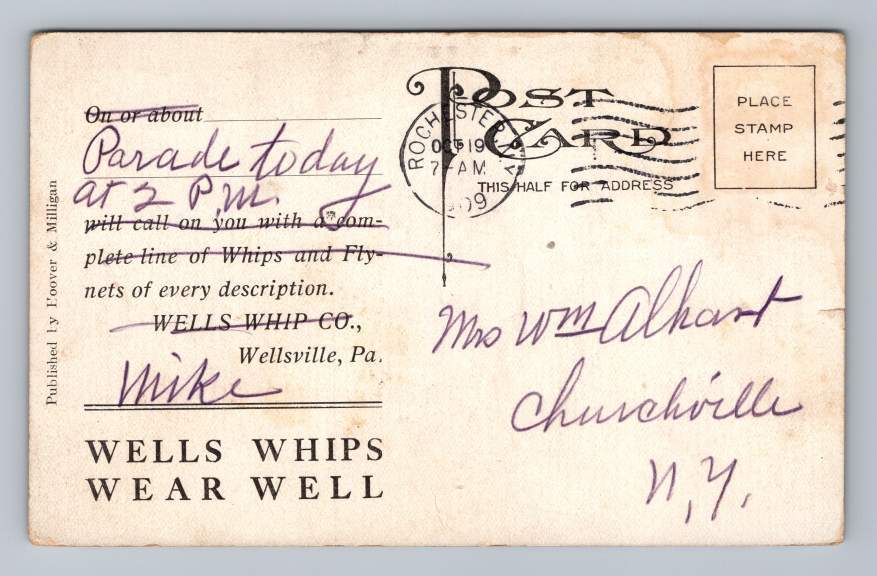 On or about
Parade today
at 2 P.M.
will call on you with a com-
plete line of Whips and Fly-
nets of every description.
WELLS WHIP CO.,
Wellsville, Pa.
Mike
WELLS WHIPS
WEAR WELL
Published by Hoover & Milligan
POST CARD
THIS HALF FOR ADDRESS
ROCHESTER
OCT 19
7-AM
PLACE
STAMP
HERE
Mrs Wm Alhart
Churchville
N.Y.